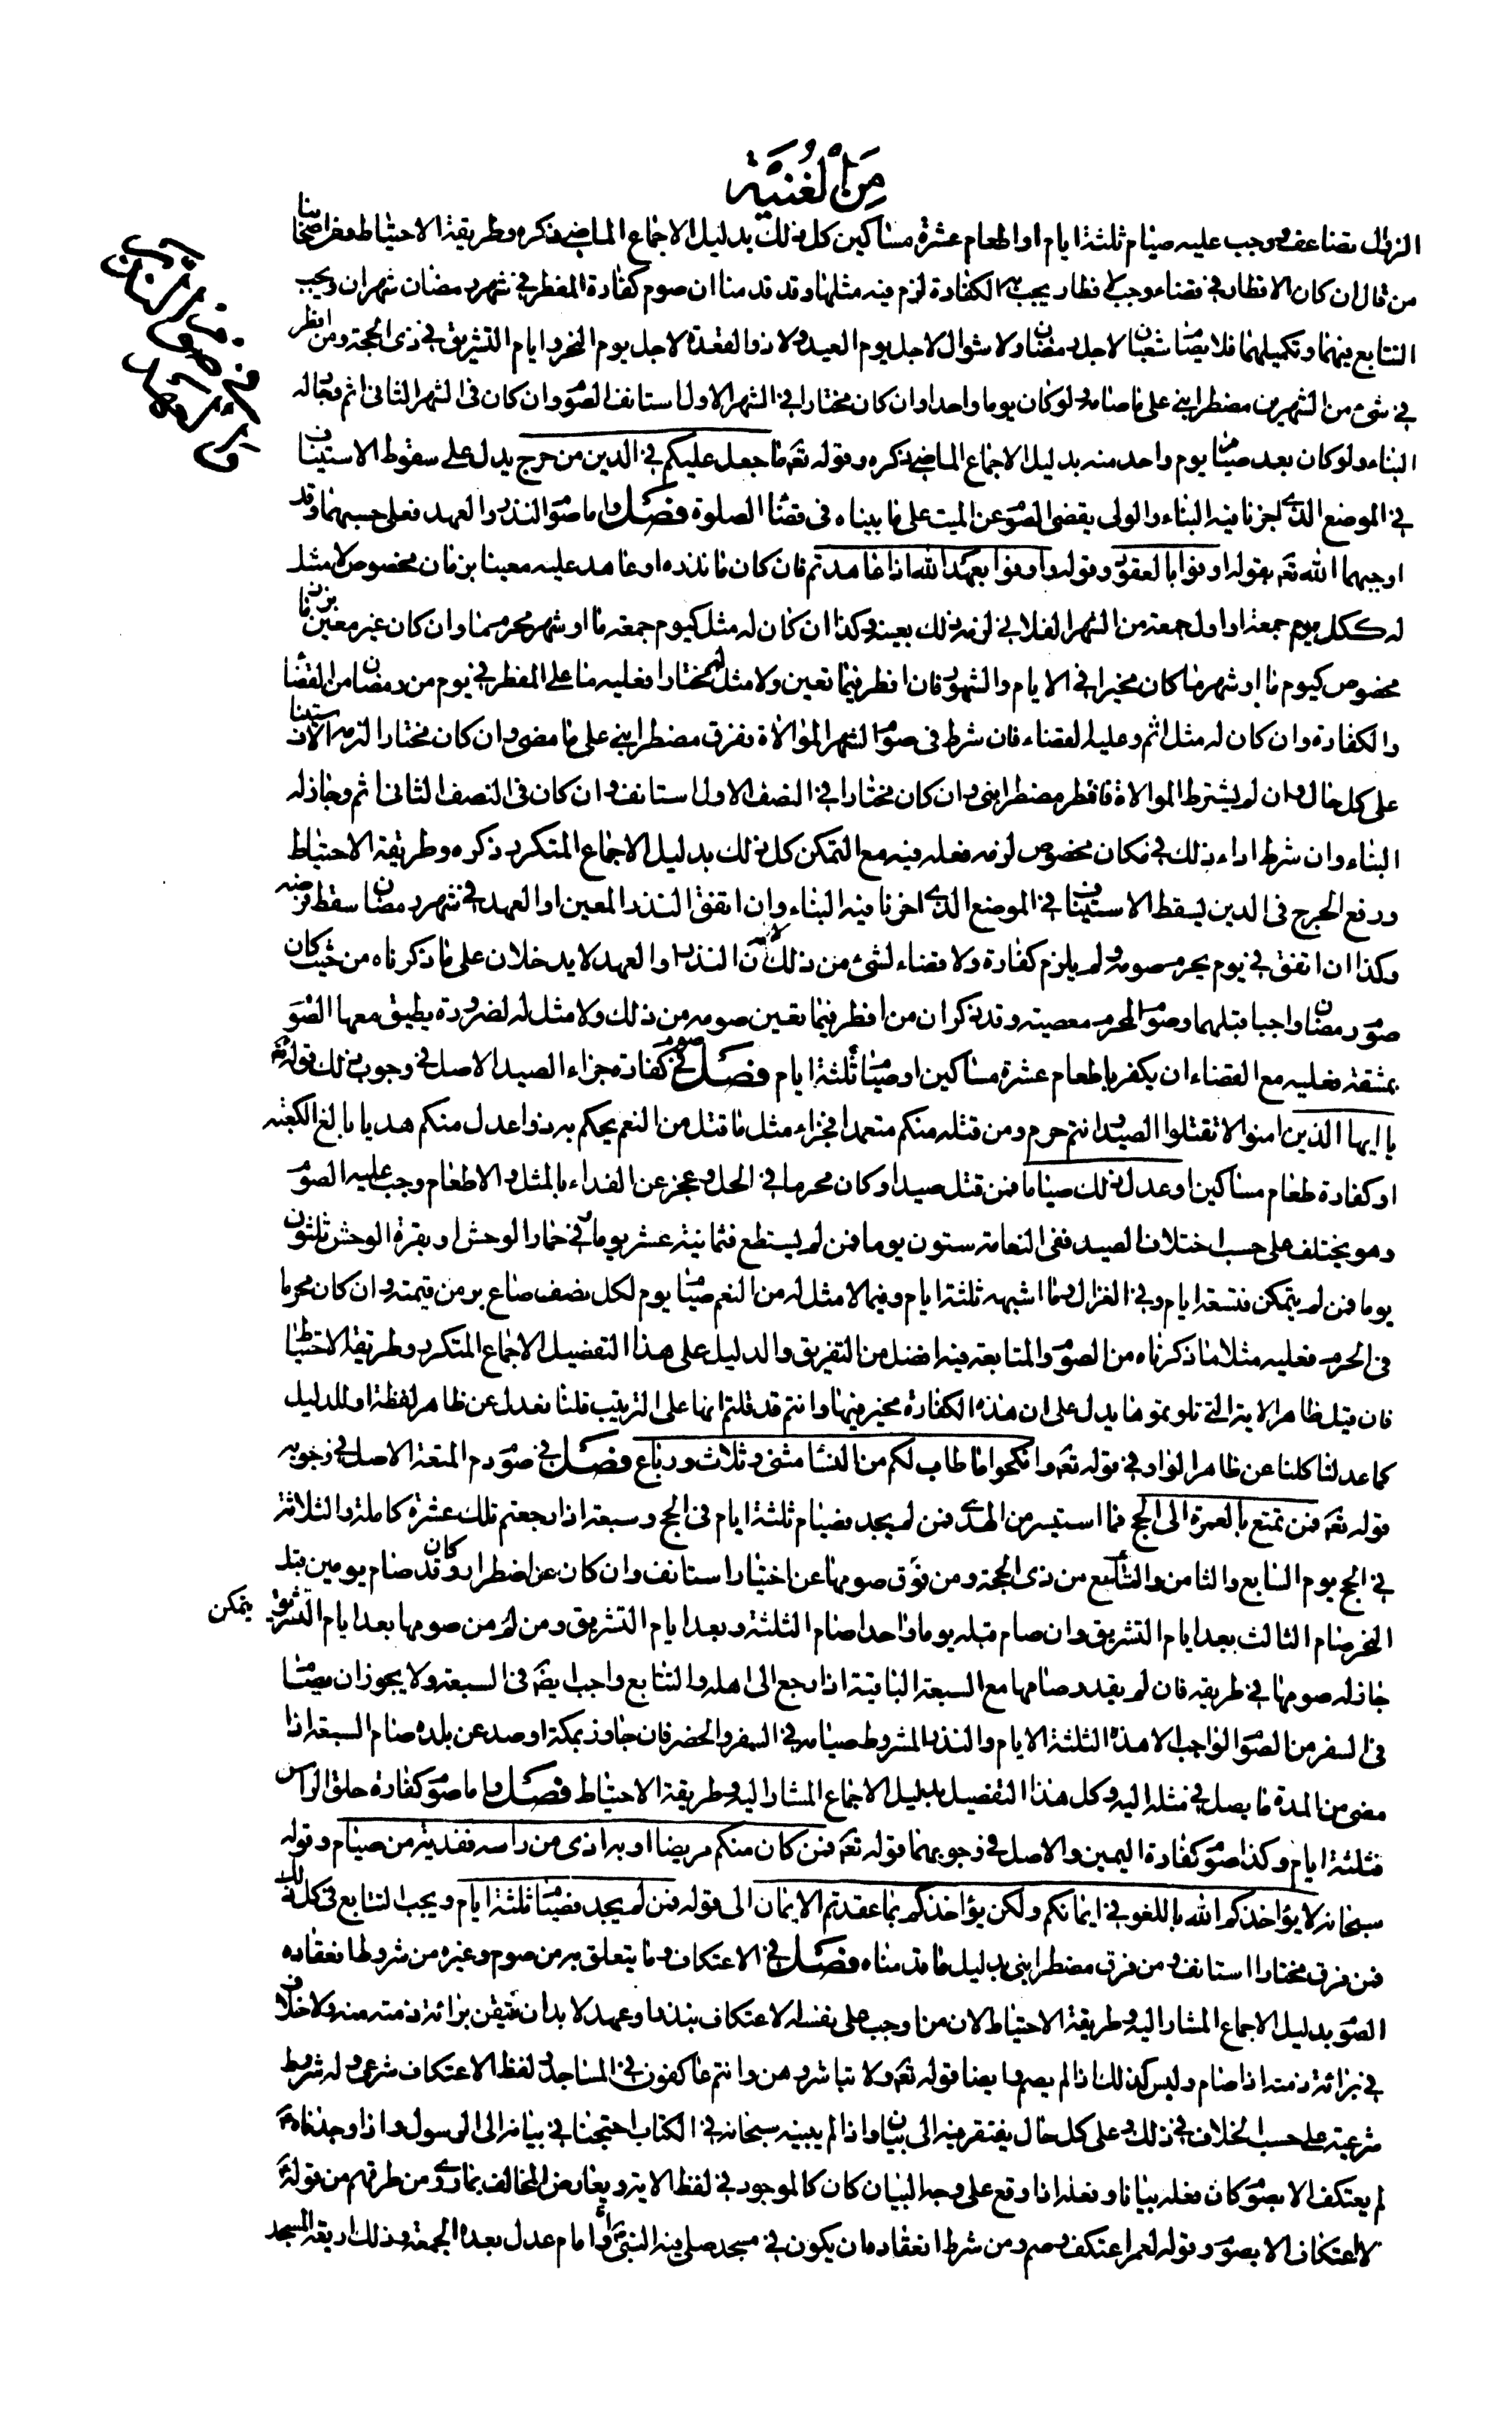 مِنَ الْغُنْيَة
الزوال تضاعف ووجب عليه صيام ثلثة ايام او اطعام عشرة مساكين كل ذلك بدليل الاجماع الماضي ذكره وطريقة الاحتياط ومن اصحابنا
من قال ان كان الافطار في قضاء وجب لافطار يجب به الكفارة لزم فيه مثلها وقد قدمنا ان صوم كفارة المفطر في شهر رمضان شهران ويجب
التتابع بينهما وتكميلهما فلا يصام شعبان لاجل رمضان ولا شوال لاجل يوم العيد ولا ذو القعدة لاجل يوم النحر وايام التشريق في ذى الحجة ومن افطر
في شيء من الشهرين مضطرا بنى على ما صامه ولو كان يوما واحدا وان كان مختارا في الشهر الاول استانف الصوم وان كان في الشهر الثانى اثم وجاز له
البناء ولو كان بعد صيام يوم واحد منه بدليل الاجماع الماضي ذكره وقوله تعم ما جعل عليكم في الدين من حرج يدل على سقوط الاستيناف
في الموضع الذي اجزنا فيه البناء والولى يقضى الصوم عن الميت على ما بيناه في قضاء الصلوة فصل واما صوم النذر والعهد فعلى حسبهما وقد
اوجبهما الله تعم بقوله اوفوا بالعقود وقوله واوفوا بعهد الله اذا عاهدتم فان كان ما نذره او عاهد عليه معينا بزمان مخصوص لا مثل
له ككل يوم جمعة او اول جمعة من الشهر الفلانى لزمه ذلك بعينه وكذا ان كان له مثل كيوم جمعة ما او شهر محرم ما وان كان غير معين بزمان
مخصوص كيوم ما او شهر ما كان مخيرا في الايام والشهور فان افطر فيما تعين ولا مثل له مختارا فعليه ما على المفطر في يوم من رمضان من القضاء
والكفارة وان كان له مثل اثم وعليه القضاء فان شرط في صوم الشهر الموالاة ففرق مضطرا بنى على ما مضى وان كان مختارا لزمه الاستيناف
على كل حال وان لم يشترط الموالاة فافطر مضطرا بنى وان كان مختارا في النصف الاول استانف وان كان في النصف الثانى اثم وجاز له
البناء وان شرط اداء ذلك في مكان مخصوص لزمه فعله فيه مع التمكن كل ذلك بدليل الاجماع المتكرر ذكره وطريقة الاحتياط
ورفع الحرج في الدين يسقط الاستيناف في الموضع الذي اجزنا فيه البناء وان اتفق النذر المعين او العهد في شهر رمضان سقط فرضه
وكذا ان اتفق في يوم يحرم صومه ولم يلزم كفارة ولا قضاء لشئ من ذلك لان النذر والعهد لا يدخلان على ما ذكرناه من حيث كان
صوم رمضان واجبا قبلهما وصوم المحرم معصيته وقد ذكر ان من افطر فيما تعين صومه من ذلك ولا مثل له لضرورة يطيق معها الصوم
بمشقة فعليه مع القضاء ان يكفر باطعام عشرة مساكين او صيام ثلثة ايام فصل في صوم كفارة جزاء الصيد الاصل في وجوب ذلك قوله تعم
يا ايها الذين امنوا لا تقتلوا الصيد وانتم حرم ومن قتله منكم متعمدا فجزاء مثل ما قتل من النعم يحكم به ذوا عدل منكم هديا بالغ الكعبة
او كفارة طعام مساكين او عدل ذلك صياما فمن قتل صيدا وكان محرما في الحل وعجز عن الفداء بالمثل والاطعام وجب عليه الصوم
وهو يختلف على حسب اختلاف الصيد ففي النعامة ستون يوما فمن لم يستطع فثمانية عشر يوما وفي حمار الوحش او بقرة الوحش ثلثون
يوما فمن لم يتمكن فتسعة ايام وفي الغزال وما اشبهه ثلثة ايام وفيما لا مثل له من النعم صيام يوم لكل نصف صاع بر من قيمته وان كان محرما
في الحرم فعليه مثلا ما ذكرناه من الصوم والمتابعة فيه افضل من التفريق والدليل على هذا التفصيل الاجماع المتكرر وطريقة الاحتياط
فان قيل ظاهر الاية التى تلوتموها يدل على ان هذه الكفارة مخير فيها وانتم قد قلتم انها على الترتيب قلنا نعدل عن ظاهر لفظة او للدليل
كما عدلنا كلنا عن ظاهر الواو في قوله تعم وانكحوا ما طاب لكم من النساء مثنى وثلاث ورباع فصل في صوم دم المتعة الاصل في وجوبه
قوله تعم فمن تمتع بالعمرة الى الحج فما استيسر من الهدى فمن لم يجد فصيام ثلثة ايام في الحج وسبعة اذا رجعتم تلك عشرة كاملة والثلاثة
في الحج يوم السابع والثامن والتاسع من ذى الحجة ومن فرق صومها عن اختيار استانف وان كان عن اضطرار وكان قد صام يومين قبل
النحر صام الثالث بعد ايام التشريق وان صام قبله يوما واحدا صام الثلثة وبعد ايام التشريق ومن لم يتمكن من صومها بعد ايام التشريق
جاز له صومها في طريقه فان لم يقدر صامها مع السبعة الباقية اذا رجع الى اهله والتتابع واجب ايضم في السبعة ولا يجوز ان يصام
في السفر من الصوم الواجب الا هذه الثلثة الايام والنذر المشروط صيامه في السفر والحضر فان جاوز بمكة او صد عن بلده صام السبعة اذا
مضى من المدة ما يصل في مثله اليه وكل هذا التفصيل بدليل الاجماع المشار اليه وطريقة الاحتياط فصل واما صوم كفارة حلق الراس
فثلثة ايام وكذا صوم كفارة اليمين والاصل في وجوبهما قوله تعم فمن كان منكم مريضا او به اذى من راسه ففدية من صيام وقوله
سبحانه لا يؤاخذكم الله باللغو في ايمانكم ولكن يؤاخذكم بما عقدتم الايمان الى قوله فمن لم يجد فصيام ثلثة ايام ويجب التتابع في كل ذلك
فمن فرق مختارا استانف ومن فرق مضطرا بنى بدليل ما قدمناه فصل في الاعتكاف وما يتعلق به من صوم وغيره من شروط انعقاده
الصوم بدليل الاجماع المشار اليه وطريقة الاحتياط لان من اوجب على نفسه الاعتكاف بنذر او عهد لا بد ان يتيقن برائة ذمته منه ولا خلاف
في برائة ذمته اذا صام وليس كذلك اذا لم يصم وايضا قوله تعم ولا تباشروهن وانتم عاكفون في المساجد ولفظ الاعتكاف شرعى وله شروط
شرعية على حسب الخلاف في ذلك وعلى كل حال يفتقر فيه الى بيان واذا لم يبينه سبحانه في الكتاب احتجنا في بيانه الى الرسول واذا وجدناه
لم يعتكف الا بصوم كان فعله بيانا وفعله اذا وقع على وجه البيان كان كالموجود في لفظ الاية ويعارض المخالف بما روى من طرقهم من قوله
لا اعتكاف الا بصوم وقوله لعمر اعتكف وصم ومن شرط انعقاده ان يكون في مسجد صلى فيه النبى او امام عدل بعده الجمعة وذلك اربعة المسجد